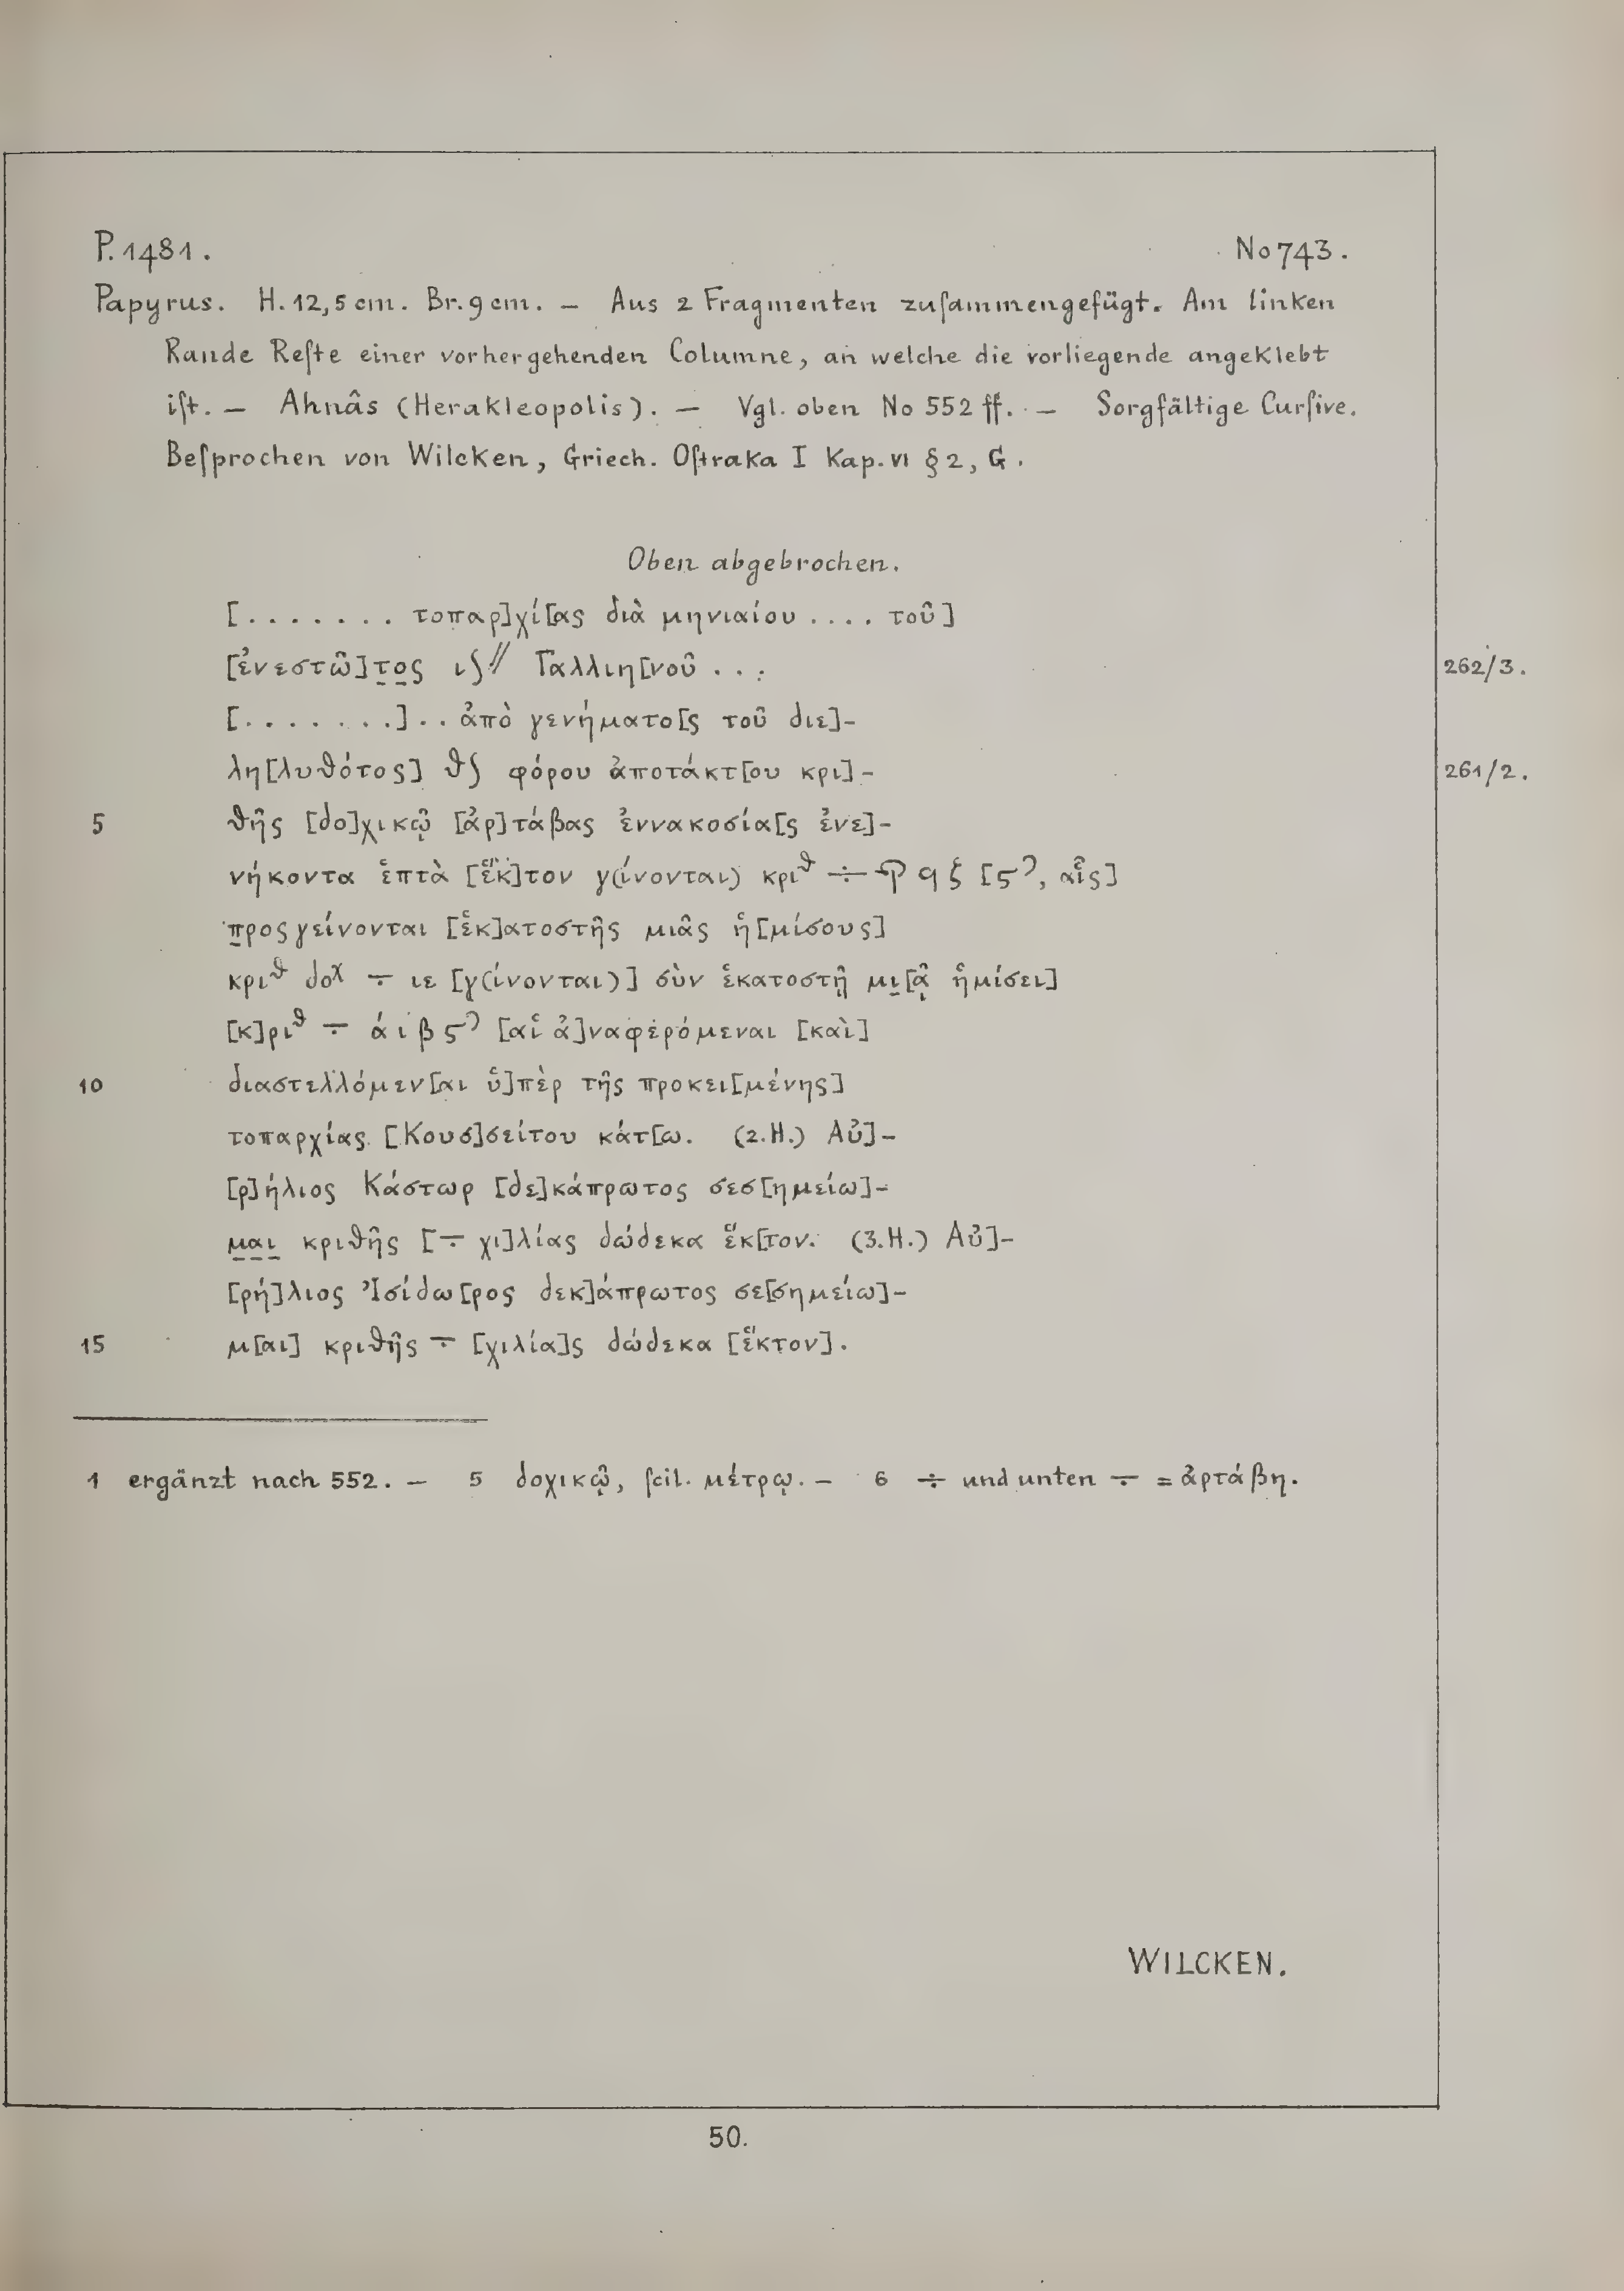 P. 1481. No 743.
Papyrus. H. 12,5 cm. Br. 9 cm. — Aus 2 Fragmenten zuſammengefügt. Am linken
Rande Reſte einer vorhergehenden Columne, an welche die vorliegende angeklebt
iſt. — Ahnâs (Herakleopolis). — Vgl. oben No 552 ff. — Sorgfältige Curſive.
Beſprochen von Wilcken, Griech. Oſtraka I Kap. VI § 2, G.
Oben abgebrochen.
[. . . . . . . τοπαρ]χί[ας διὰ μηνιαίου . . . . τοῦ]
[ἐνεστῶ]τ̣ο̣ς ιʃ// Γαλλιη[νοῦ . . . 262/3.
[. . . . . . .] . . ἀπὸ γενήματο[ς τοῦ διε]-
λη[λυθότος] θʃ φόρου ἀποτάκτ[ου κρι]- 261/2.
5 θῆς [δο]χικῷ [ἀρ]τάβας ἐννακοσία[ς ἐνε]-
νήκοντα ἑπτὰ [ἕκ]τον γ(ίνονται) κριθ ÷ ϡ ϙ ζ [ϛʾ, αἷς]
π̣ροςγείνονται [ἑκ]ατοστῆς μιᾶς ἡ[μίσους]
κριθ δοχ ∸ ιε [γ(ίνονται)] σὺν ἑκατοστῇ μι̣[ᾷ ἡμίσει]
[κ]ριθ ∸ ά ι β ϛʾ [αἱ ἀ]ναφερόμεναι [καὶ]
10 διαστελλόμεν[αι ὑ]πὲρ τῆς προκει[μένης]
τοπαρχίας [Κουσ]σείτου κάτ[ω. (2. H.) Αὐ]-
[ρ]ήλιος Κάστωρ [δε]κάπρωτος σεσ[ημείω]-
μ̣α̣ι̣ κριθῆς [∸ χι]λίας δώδεκα ἕκ[τον. (3. H.) Αὐ]-
[ρή]λιος Ἰσίδω[ρος δεκ]άπρωτος σε[σημείω]-
15 μ[αι] κριθῆς ∸ [χιλία]ς δώδεκα [ἕκτον].
1 ergänzt nach 552. — 5 δοχικῷ, ſcil. μέτρῳ. — 6 ÷ und unten ∸ = ἀρτάβη.
WILCKEN.
50.